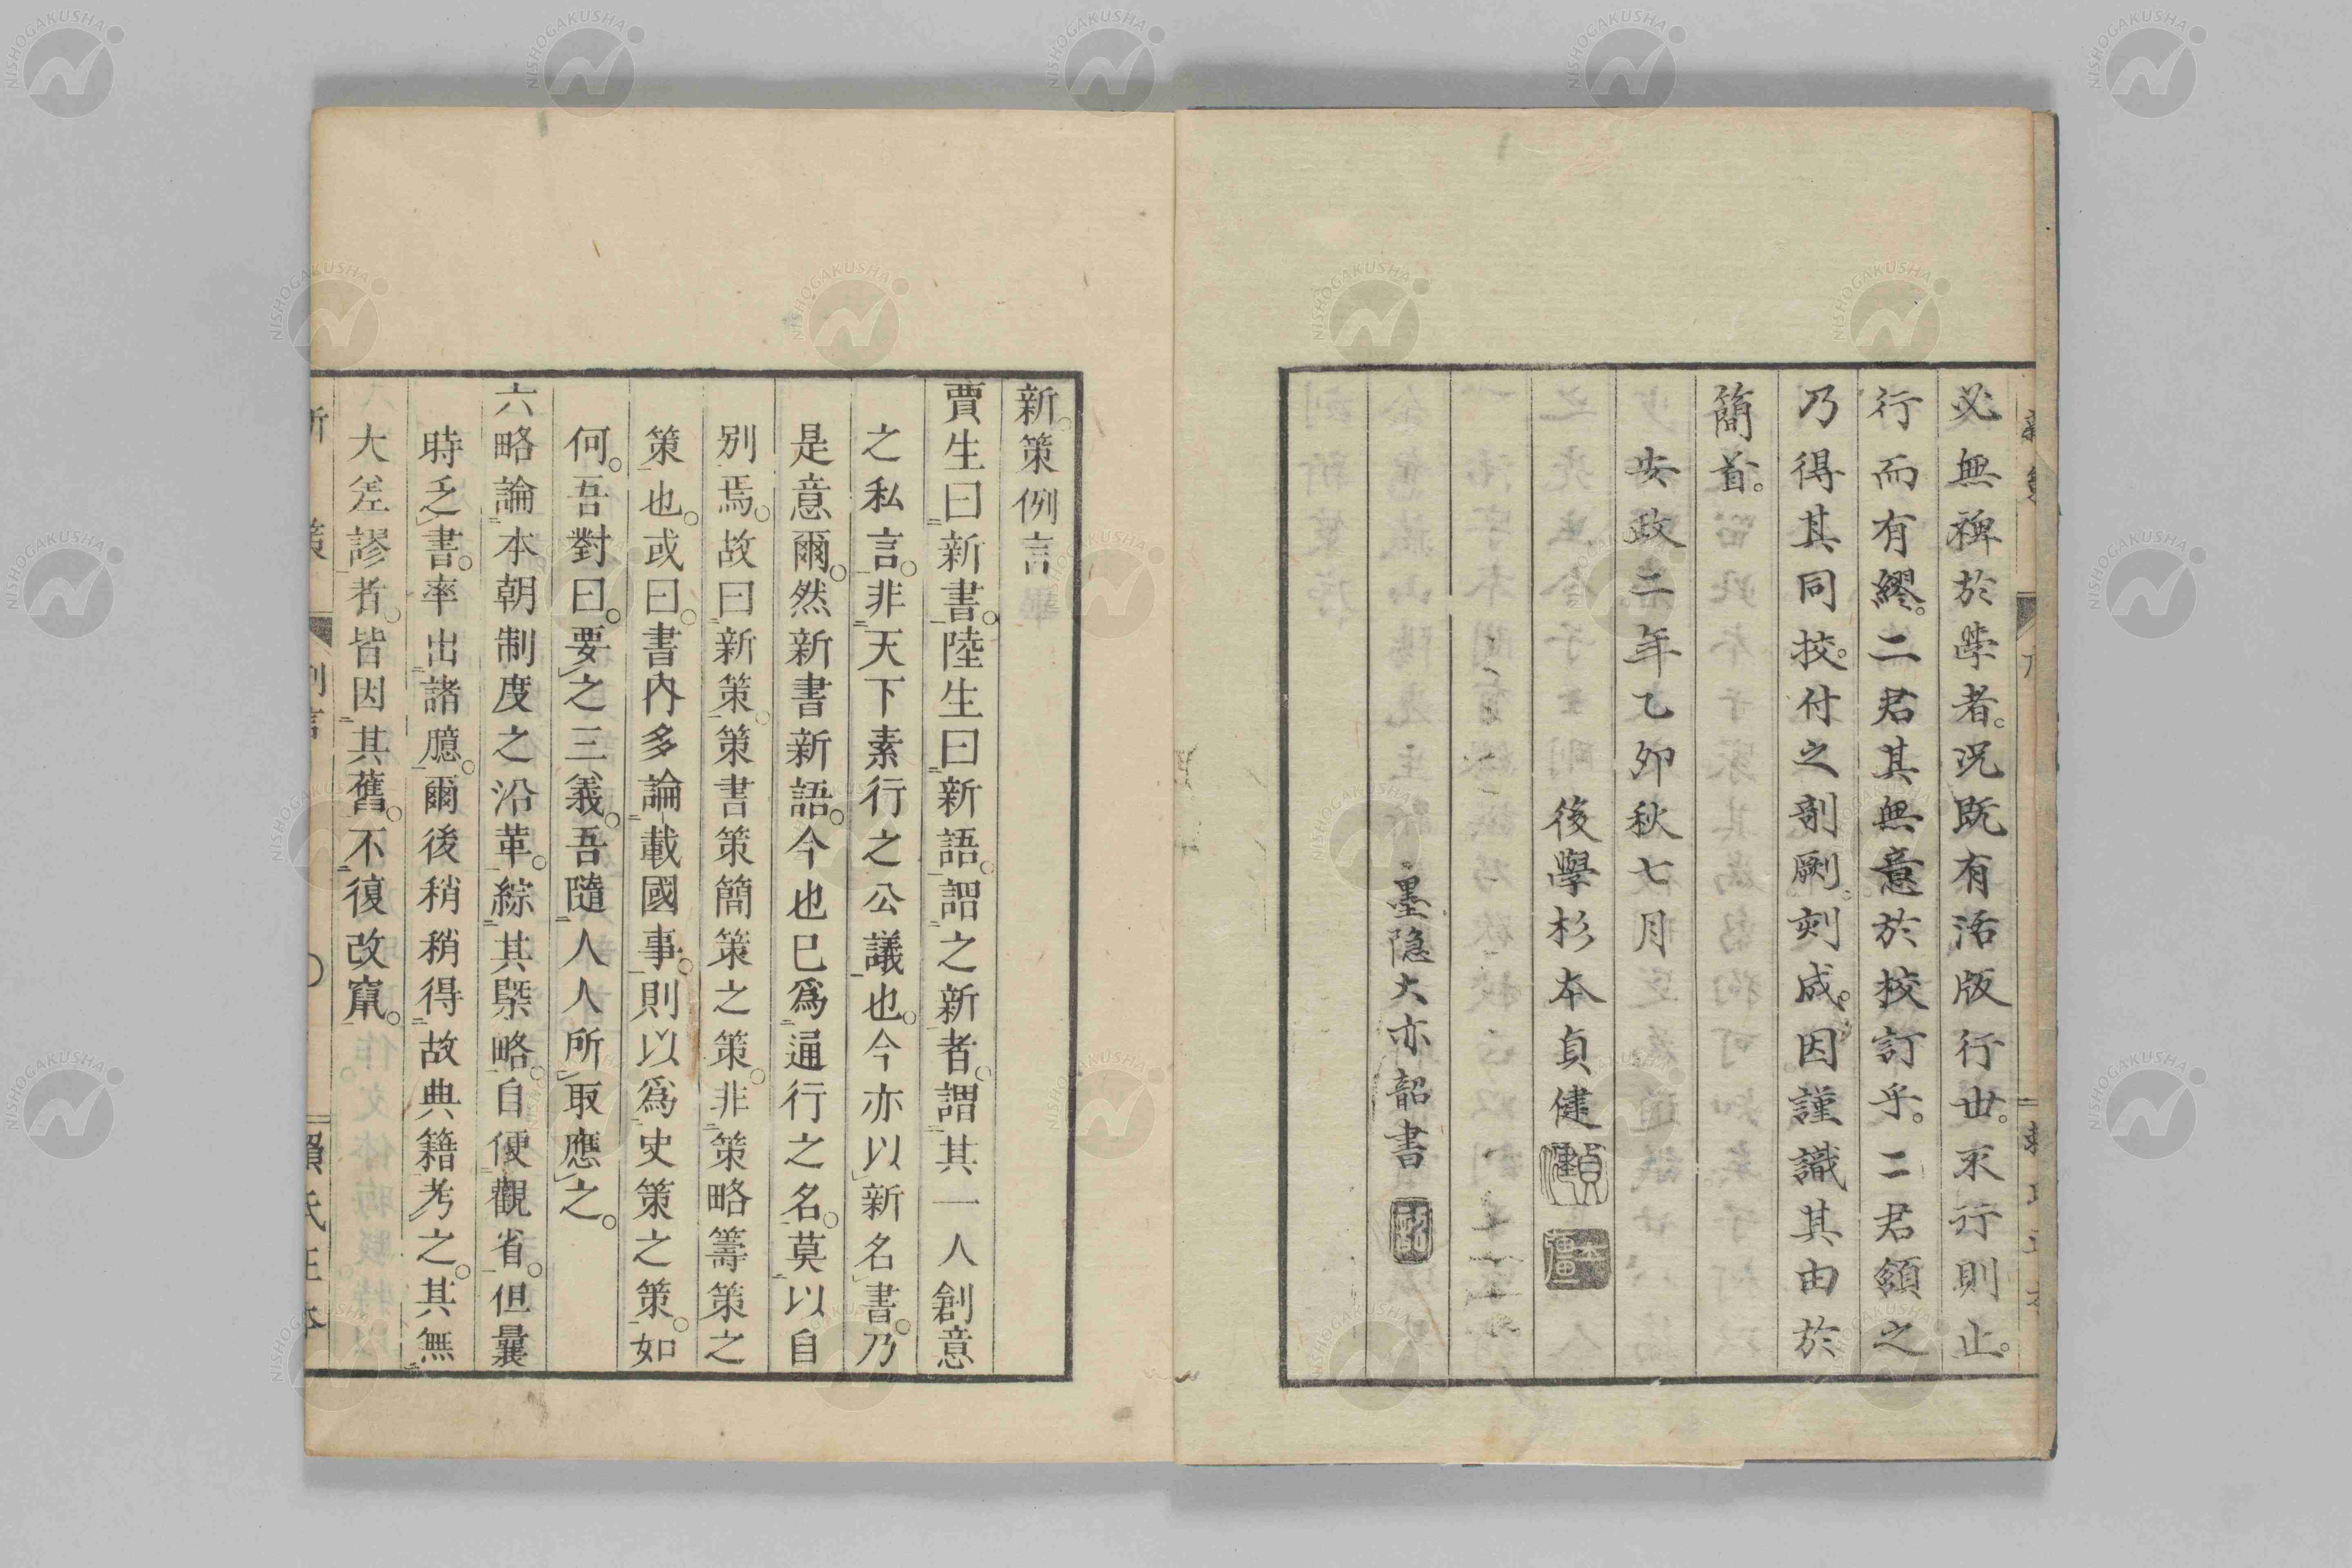 必無裨於學者。況既有活版行世。末行則止。
行而有繆。二君其無意於校訂乎。二君頷之
乃得其同校。付之剞劂。刻成。因謹識其由於
簡首。
安政二年乙卯秋七月
後學杉本貞健
墨隱大亦韶書
新策例言
賈生曰新書。陸生曰新語。謂之新者。謂其一人創意
之私言。非天下素行之公議也。今亦以新名書。乃
是意爾。然新書新語。今也已爲通行之名。莫以自
別焉。故曰新策。策書策簡策之策。非策略籌策之
策也。或曰。書內多論載國事。則以爲史策之策。如
何。吾對曰。要之三義。吾隨人人所取應之。
六略論本朝制度之沿革。綜其槩略。自便觀省。但曩
時乏書。率出諸臆。爾後稍稍得故典籍考之。其無
大差謬者。皆因其舊。不復改竄。
NISHOGAKUSHA